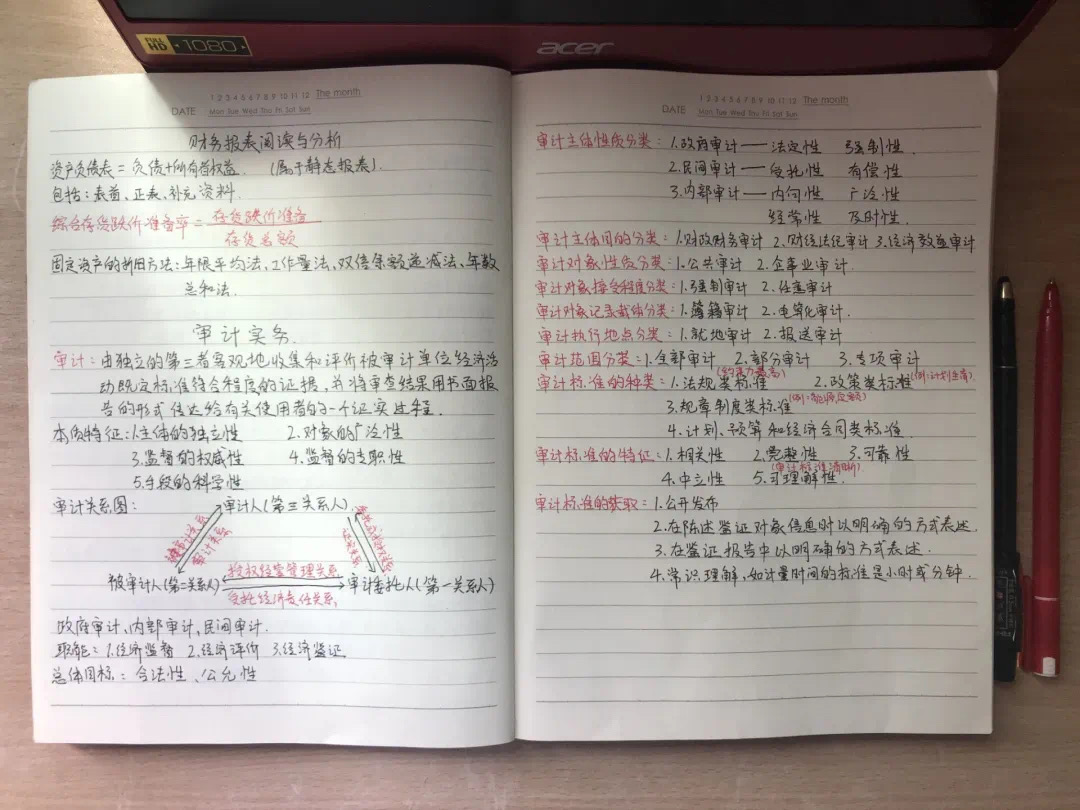 FULL HD 1080
acer
1 2 3 4 5 6 7 8 9 10 11 12 The month
DATE Mon Tue Wed Thu Fri Sat Sun
财务报表阅读与分析
资产负债表=负债+所有者权益. (属于静态报表).
包括:表首、正表、补充资料.
综合存货跌价准备率=存货跌价准备
存货总额
固定资产的折旧方法:年限平均法,工作量法,双倍余额递减法、年数
总和法.
审计实务.
审计:由独立的第三者客观地收集和评价被审计单位经济活
动既定标准符合程度的证据,并将审查结果用书面报
告的形式传达给有关使用者的一个证实过程.
本质特征:1.主体的独立性 2.对象的广泛性
3.监督的权威性 4.监督的专职性
5.手段的科学性
审计关系图: 审计人(第三关系人)
审计关系
授权经营管理关系
被审计人(第二关系人) 审计委托人(第一关系人)
受托经济责任关系
政府审计、内部审计、民间审计.
职能:1.经济监督 2.经济评价 3.经济鉴证
总体目标:合法性、公允性
1 2 3 4 5 6 7 8 9 10 11 12 The month
DATE Mon Tue Wed Thu Fri Sat Sun
审计主体性质分类:1.政府审计——法定性 强制性.
2.民间审计——受托性 有偿性
3.内部审计——内向性 广泛性
经常性 及时性.
审计主体目的分类:1.财政财务审计 2.财经法纪审计 3.经济效益审计
审计对象性质分类:1.公共审计 2.企事业审计.
审计对象接受程度分类:1.强制审计 2.任意审计
审计对象记录载体分类:1.簿籍审计 2.电算化审计.
审计执行地点分类:1.就地审计 2.报送审计
审计范围分类:1.全部审计 2.部分审计 3.专项审计
(约束力最高)
审计标准的种类:1.法规类标准 2.政策类标准(例:计划生育)
3.规章制度类标准(例:能源定额)
4.计划、预算和经济合同类标准.
审计标准的特征:1.相关性 2.完整性 3.可靠性
(审计标准清晰)
4.中立性 5.可理解性.
审计标准的获取:1.公开发布
2.在陈述鉴证对象信息时以明确的方式表述.
3.在鉴证报告中以明确的方式表述.
4.常识理解,如计量时间的标准是小时或分钟.